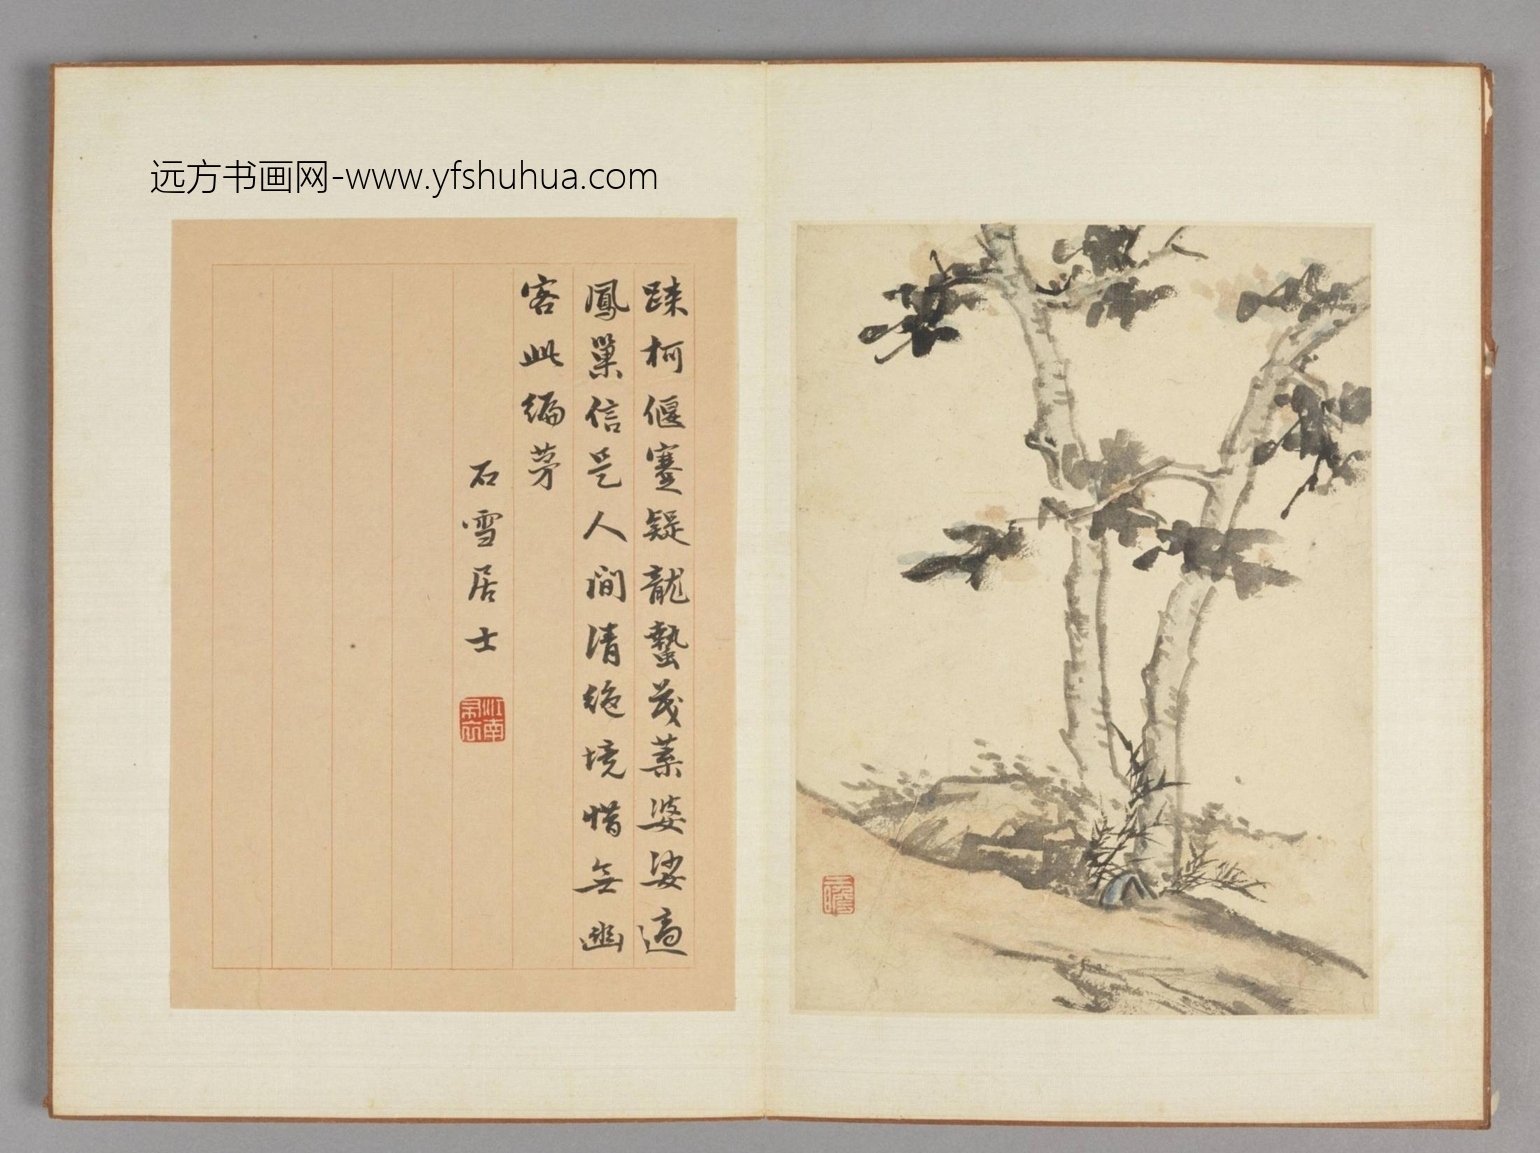 远方书画网-www.yfshuhua.com
踈柯偃蹇疑龍蟄茂葉婆娑適
鳳巢信是人間清絶境惜無幽
客此編茅
石雪居士
江南